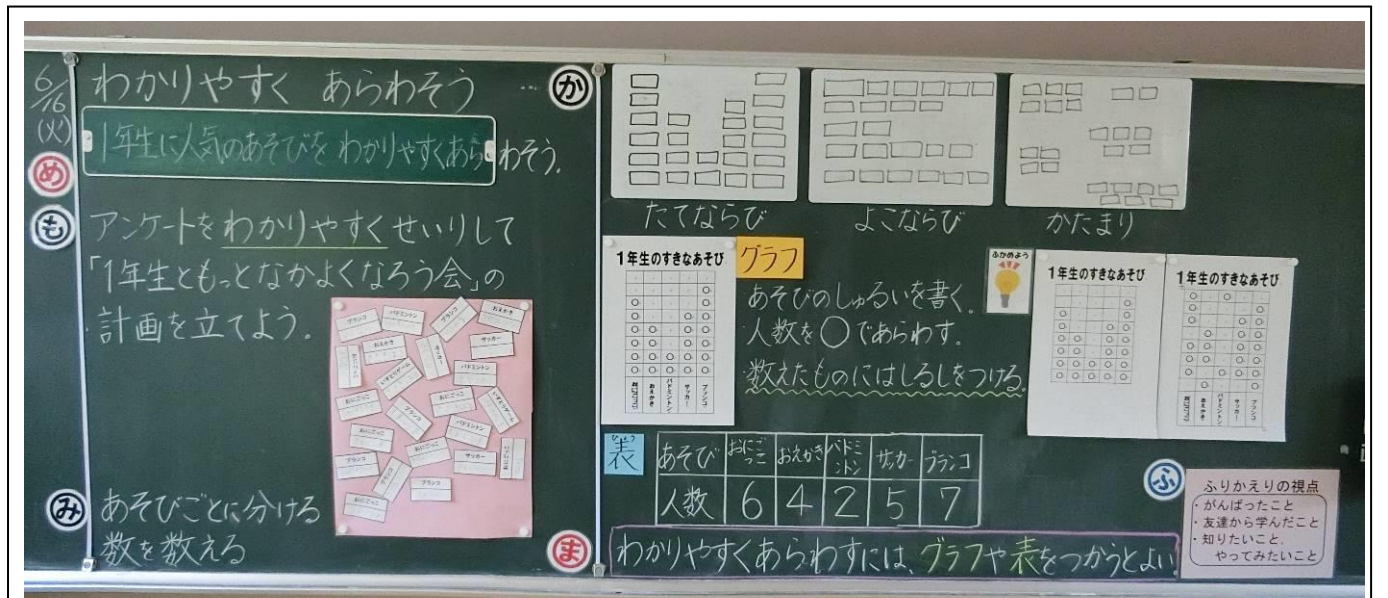 6/16
(火)
わかりやすく あらわそう
め
1年生に人気のあそびを わかりやすくあらわそう.
も
アンケートをわかりやすくせいりして
「1年生ともっとなかよくなろう会」の
計画を立てよう.
ブランコ
バドミントン
ブランコ
おえかき
おえかき
サッカー
いすとりゲーム
バドミントン
おにごっこ
おにごっこ
ブランコ
バドミントン
おにごっこ
おにごっこ
サッカー
ブランコ
ブランコ
ブランコ
おにごっこ
み
あそびごとに分ける
数を数える
か
たてならび
よこならび
かたまり
1年生のすきなあそび
おにごっこ
おえかき
バドミントン
サッカー
ブランコ
グラフ
あそびのしゅるいを書く.
人数を○であらわす.
数えたものにはしるしをつける.
ふかめよう
1年生のすきなあそび
1年生のすきなあそび
おえかき
バドミントン
サッカー
ブランコ
ひょう
表
あそび おにごっこ おえかき バドミントン サッカー ブランコ
人数 6 4 2 5 7
ま
わかりやすくあらわすには、グラフや表をつかうとよい.
ふ
ふりかえりの視点
・がんばったこと
・友達から学んだこと
・知りたいこと、
やってみたいこと